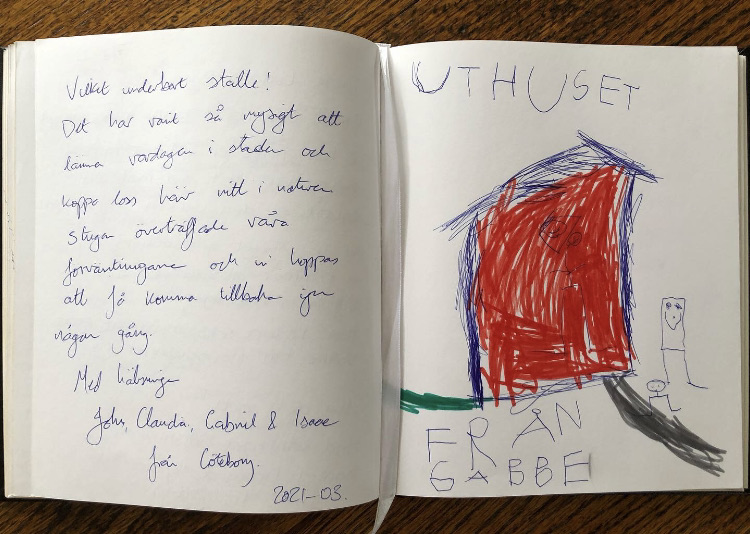 Vilket underbart ställe!
Det har varit så mysigt att
lämna vardagen i staden och
koppa loss här mitt i naturen.
Stugan överträffade våra
förväntningarna och vi hoppas
att få komma tillbaka igen
någon gång.
Med hälsningar
John, Claudia, Gabriel & Isaac
från Göteborg.
2021-03.
UTHUSET
FRÅN
GABBE